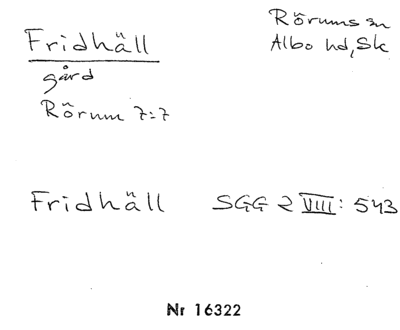 Fridhäll
gård
Rörum 7:7
Rörums sn
Albo hd, Sk
Fridhäll SGG 2 VIII: 543
Nr 16322